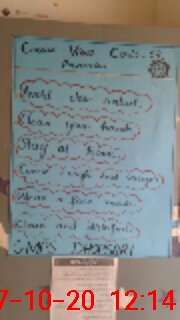 Corona Virus Covid-19
Prevention
Avoid close contact.
Clean your hands
Stay at home.
Cover cough and sneezes
Wear a face mask
Clean and disinfect
7-10-20 12:14